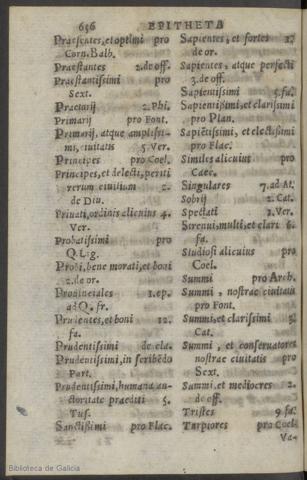 656 EPITHETA
Praestantes, et optimi pro
Corn. Balb.
Praestantes 2. de off.
Praestantissimi pro
Sext.
Praeturij 2. Phi.
Primarij pro Font.
Primarij, atque amplissi-
mi, ciuitatis 5. Ver.
Principes pro Coel.
Principes, et delecti, periti
rerum ciuilium 2.
de Diu.
Priuati, ordinis alicuius 4.
Ver.
Probatissimi pro
Q. Lig.
Probi, bene morati, et boni
2. de or.
Prouinciales 1. ep.
ad Q. fr.
Prudentes, et boni 12.
fa.
Prudentissimi de cla.
Prudentissimi, in scribēdo
Part.
Prudentissimi, humana au-
ctoritate praediti 5.
Tus.
Sanctissimi pro Flac.
Sapientes, et fortes
de or.
Sapientes, atque perfecti
3. de off.
Sapientissimi 5. fa.
Sapientissimi, et clarissimi
pro Plan.
Sapiētissimi, et electissimi
pro Flac.
Similes alicuius pro
Caec.
Singulares 7. ad At.
Sobrij 2. Cat.
Spectati 1. Ver.
Strenui, multi, et clari 6.
fa.
Studiosi alicuius pro
Coel.
Summi pro Arch.
Summi, nostrae ciuitatis
pro Font.
Summi, et clarissimi 3.
Cat.
Summi, et conseruatores
nostrae ciuitatis pro
Sext.
Summi, et mediocres 2.
de off.
Tristes 9. fa.
Turpiores pro Coel.
Va-
Biblioteca de Galicia